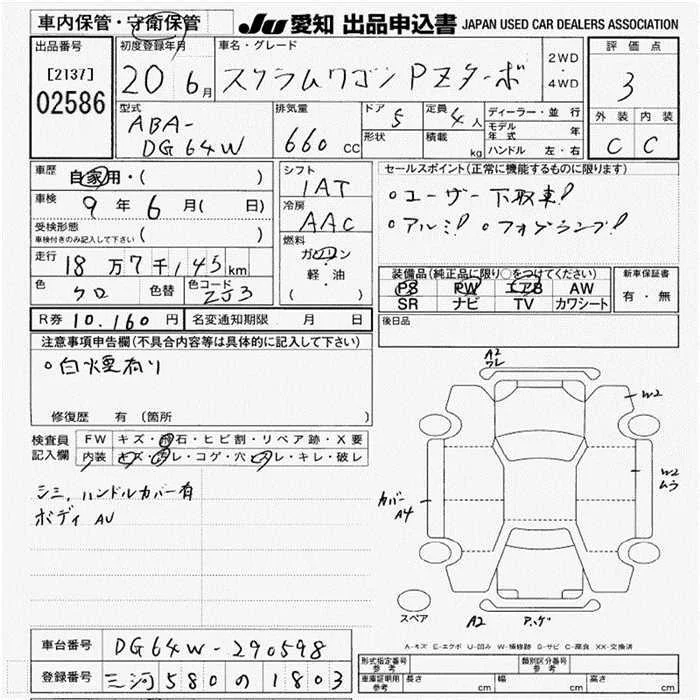 車内保管・守衛保管
JU 愛知 出品申込書 JAPAN USED CAR DEALERS ASSOCIATION
出品番号
[2137]
02586
初度登録年月
20 6月
車名・グレード
スクラムワゴン PZターボ
2WD
・
4WD
評価点
3
外装 内装
C C
型式
ABA-
DG64W
排気量
660 cc
ドア 5
形状
定員 4人
積載 kg
ディーラー・並行
モデル年式 年
ハンドル 左・右
車歴
自家用・( )
車検
9年 6月( 日)
受検形態
車検付きのみ記入して下さい ( )
走行
18万7千145km
色
クロ
色替
色コード
ZJ3
シフト
IAT
冷房
AAC
燃料
ガソリン
軽・油
( )
セールスポイント(正常に機能するものに限ります)
○ユーザー下取車!
○アルミ! ○フォグランプ!
装備品(純正品に限り○をつけてください)
PS PW エアB AW
SR ナビ TV カワシート
新車保証書
有・無
R券 10,160円
名変通知期限 月 日
後日品
注意事項申告欄(不具合内容等は具体的に記入して下さい)
○白煙有り
修復歴 有 (箇所
検査員
記入欄
FW キズ・飛石・ヒビ割・リペア跡・X要
内装 キズ・汚レ・コゲ・穴・スレ・キレ・破レ
シミ,ハンドルカバー有
ボディ AU
A2
ワレ
W2
W2
ムラ
カバー
A4
スペア
A2
A-キズ E-エクボ U-凹み W-補修跡 S-サビ C-腐食 XX-交換済
車台番号 DG64W-290598
登録番号 三河 580 の 1803
形式指定番号
参考
類別区分番号
参考
車庫証明用
参考
長さ cm 幅 cm 高さ cm